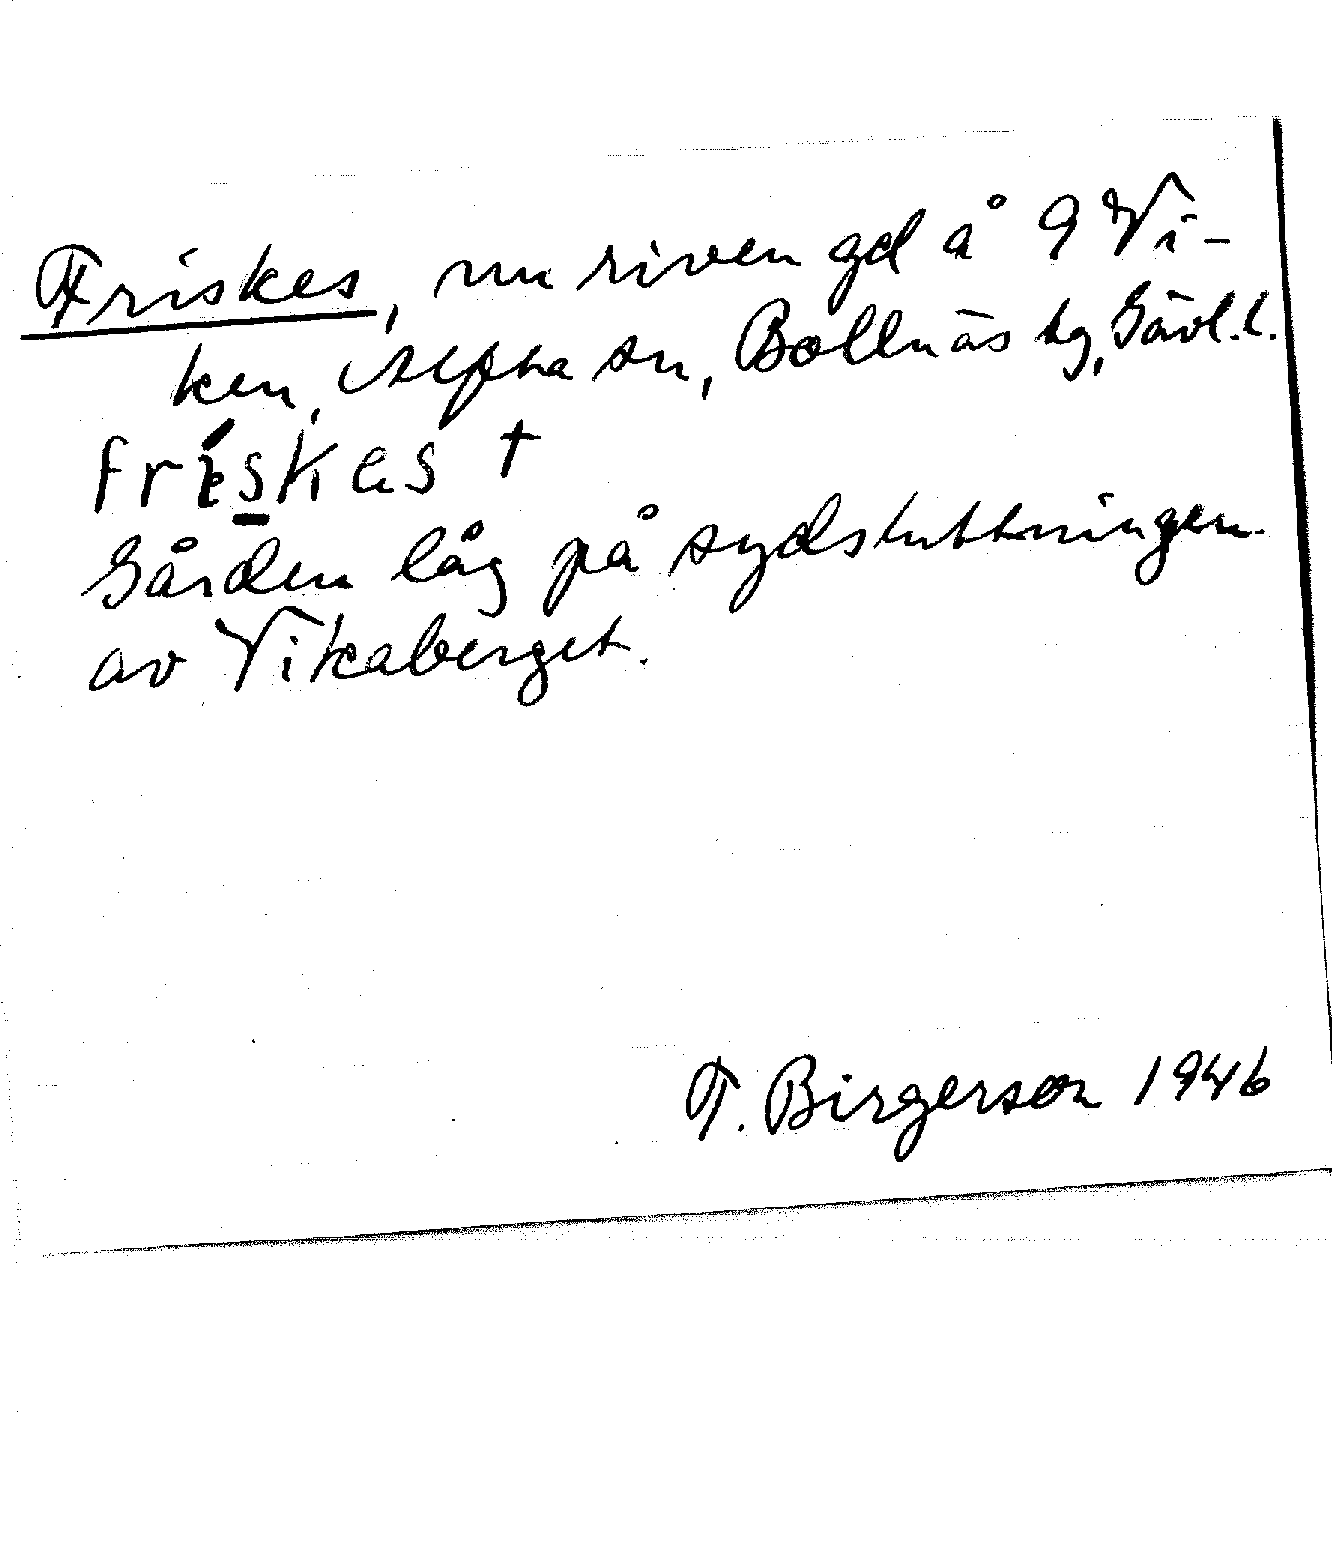 Friskes, nu riven gd å 9 Vi-
ken, Alfta sn, Bollnäs tg, Gävl. l.
friskes †
Gården låg på sydsluttningen
av Vikaberget.
T. Birgerson 1946